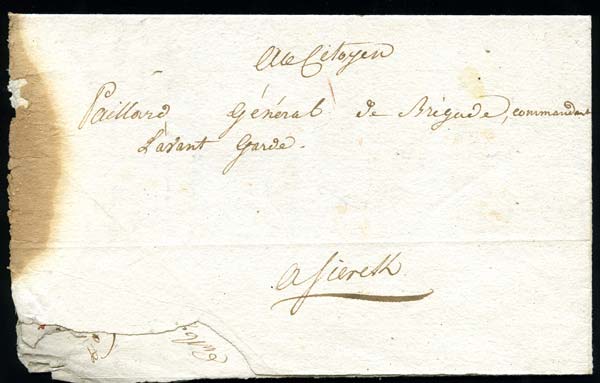 Au Citoyen
Paillard Général de Brigade, commandant
L'avant Garde.
a Siereth